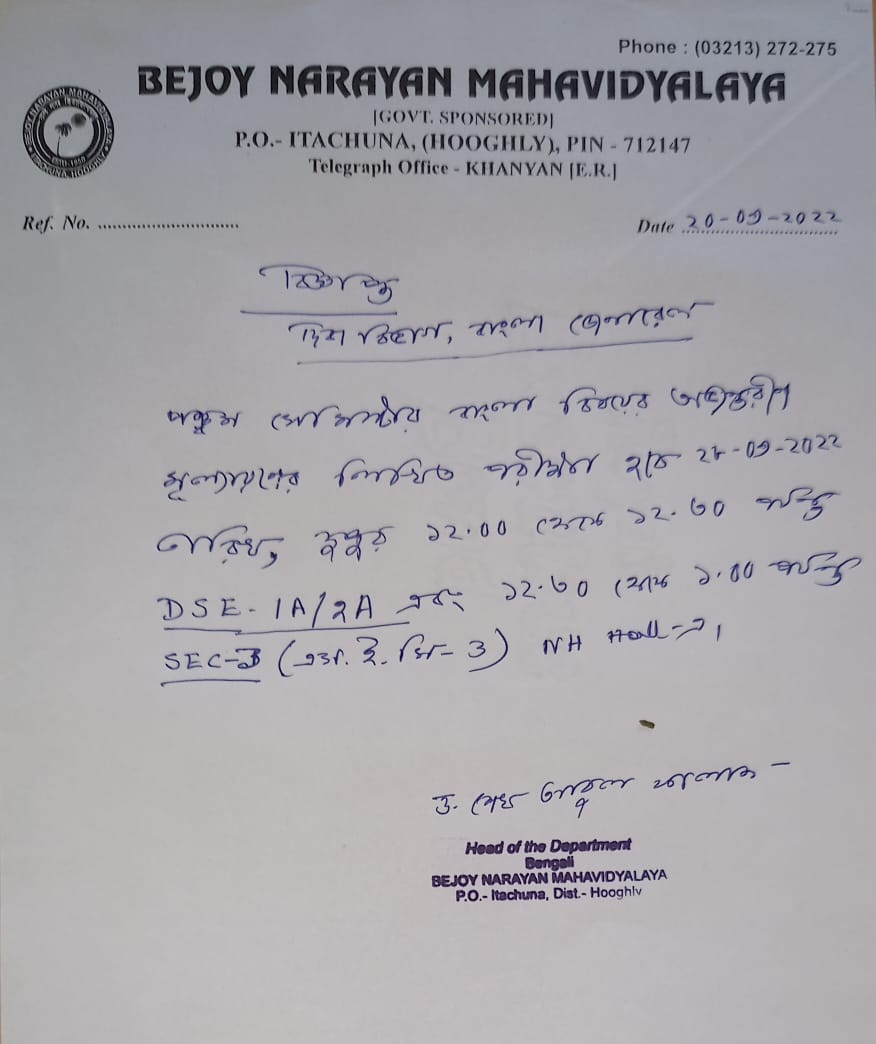 Phone : (03213) 272-275
BEJOY NARAYAN MAHAVIDYALAYA
[GOVT. SPONSORED]
P.O.- ITACHUNA, (HOOGHLY), PIN - 712147
Telegraph Office - KHANYAN [E.R.]
Ref. No. ............................
Date 20-09-2022
বিজ্ঞপ্তি
দিবা বিভাগ, বাংলা জেনারেল
পঞ্চম সেমিস্টার বাংলা বিষয়ের অভ্যন্তরীণ
মূল্যায়ণের লিখিত পরীক্ষা হবে -09-2022
তারিখ, দুপুর ১২.00 থেকে ১২.৩0 পর্যন্ত
DSE-1A/2A এবং ১২.৩0 থেকে ১.00 পর্যন্ত
SEC-3 (এস.ই.সি-3) NH Hall-এ।
ড. সেখ
Head of the Department
Bengali
BEJOY NARAYAN MAHAVIDYALAYA
P.O.- Itachuna, Dist.- Hooghly